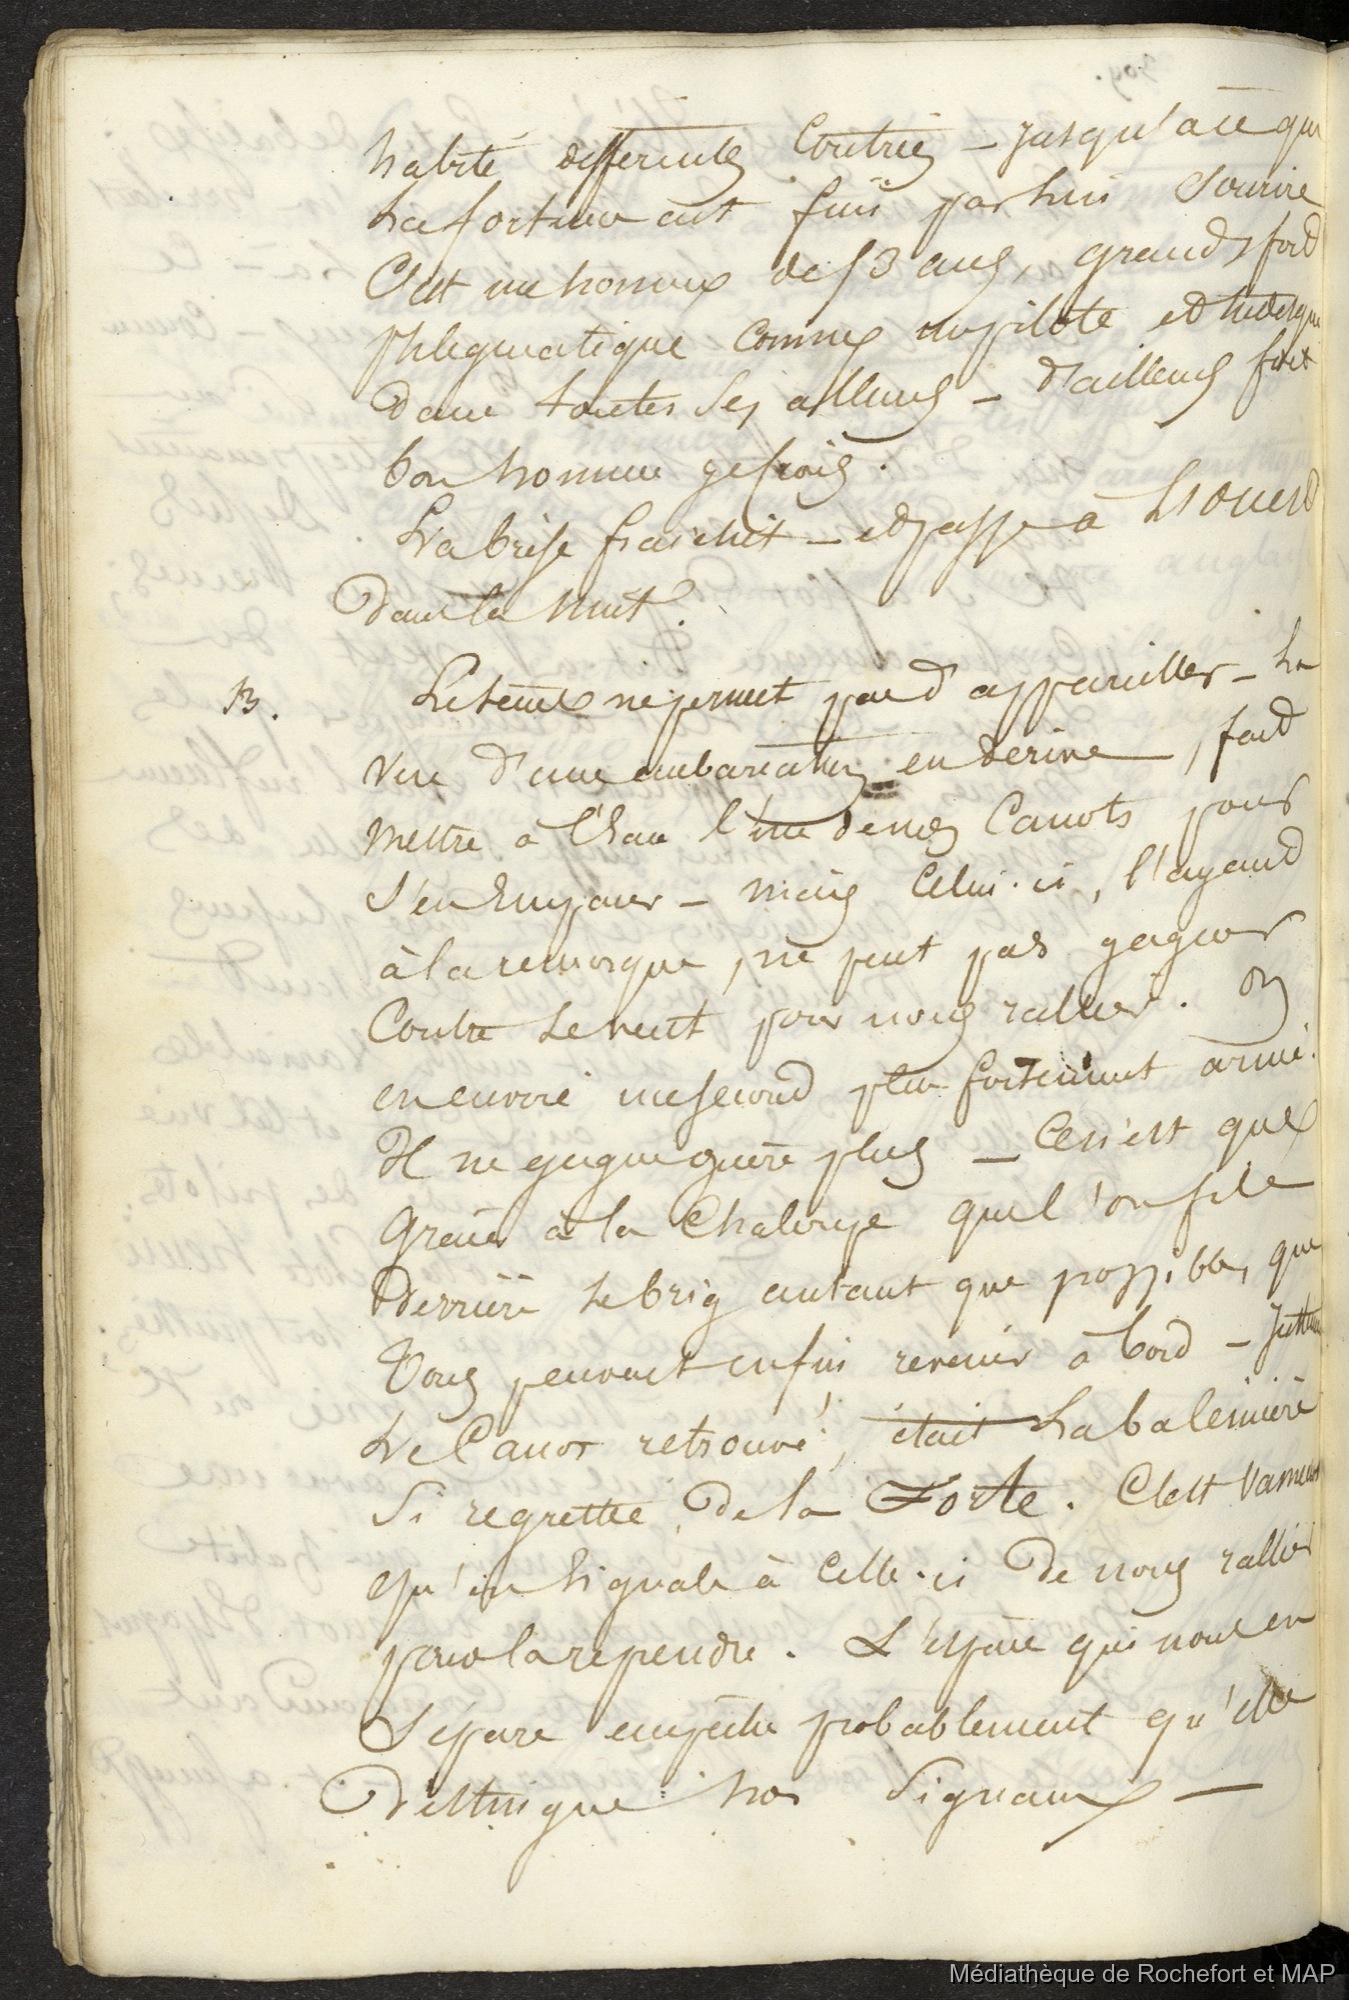 habité differentes Contrées — jusqu'à ce que
La fortune eut fini par lui Sourire
C'est un homme de 53 ans, grand, froid
phlegmatique comme un pilote et
dans toutes Ses allures — d'ailleurs fort
bon homme je crois.
La brise fraichit — et passe à L'Ouest
dans la nuit.
13. Le temps ne permet pas d'appareiller — La
vue d'une embarcation en derive, fait
mettre à l'Eau l'un de nos Canots pour
s'en Emparer — mais Celui-ci, l'ayant
à la remorque, ne peut pas gagner
Contre Le vent pour nous rallier. On
en envoie un second plus fortement armé.
Il ne gagne guère plus — Ce n'est que
Grâce à la Chaloupe que l'on file
Derrière Le brig autant que possible, que
Tous peuvent enfin revenir à bord —
Le Canot retrouvé, était La baleinière
Si regrettée, de la Forte. C'est Vainement
qu'on Signale à Celle-ci De nous rallier
pour la reprendre. L'espace qui nous en
Sépare empêche probablement qu'elle
Distingue nos Signaux —
Médiathèque de Rochefort et MAP